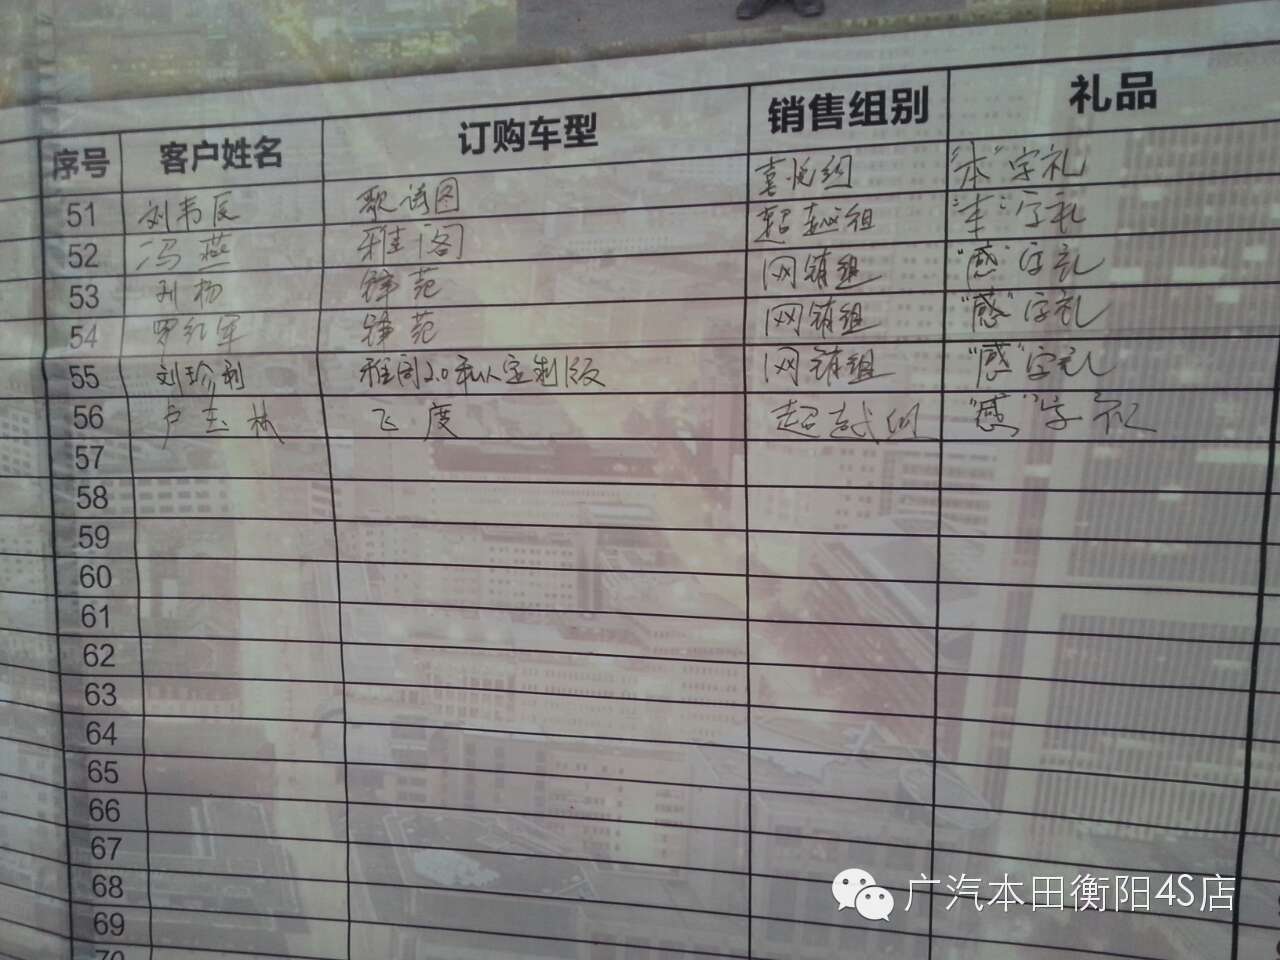 序号 客户姓名 订购车型 销售组别 礼品
51 刘韦辰 歌诗图 喜悦组 "本"字礼
52 冯燕 雅阁 超越组 "丰"字礼
53 刘杨 锋范 网销组 "感"字礼
54 罗红军 锋范 网销组 "感"字礼
55 刘珍利 雅阁2.0私人定制版 网销组 "感"字礼
56 卢玉林 飞度 超越组 "感"字礼
57
58
59
60
61
62
63
64
65
66
67
68
69
70
广汽本田衡阳4S店